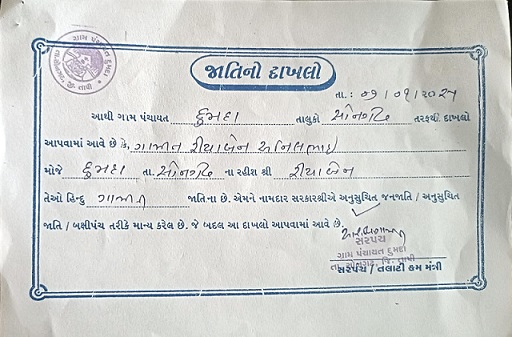 ગ્રામ પંચાયત દુમદા
જાતિનો દાખલો
તા. : ૦૧ / ૦૧ / ૨૦૨૫
આથી ગામ પંચાયત દુમદા તાલુકો સોનગઢ તરફથી દાખલો
આપવામાં આવે છે કે, ગામીત રીયાબેન અનિલભાઇ
મોજે દુમદા તા. સોનગઢ ના રહીશ શ્રી રીયાબેન
તેઓ હિન્દુ ગામીત જાતિના છે. એમને નામદાર સરકારશ્રીએ અનુસુચિત જનજાતિ / અનુસુચિત
જાતિ / બક્ષીપંચ તરીકે માન્ય કરેલ છે. જે બદલ આ દાખલો આપવામાં આવે છે.
સરપંચ
ગ્રામ પંચાયત દુમદા
તા. સોનગઢ, જિ. તાપી
સરપંચ / તલાટી કમ મંત્રી